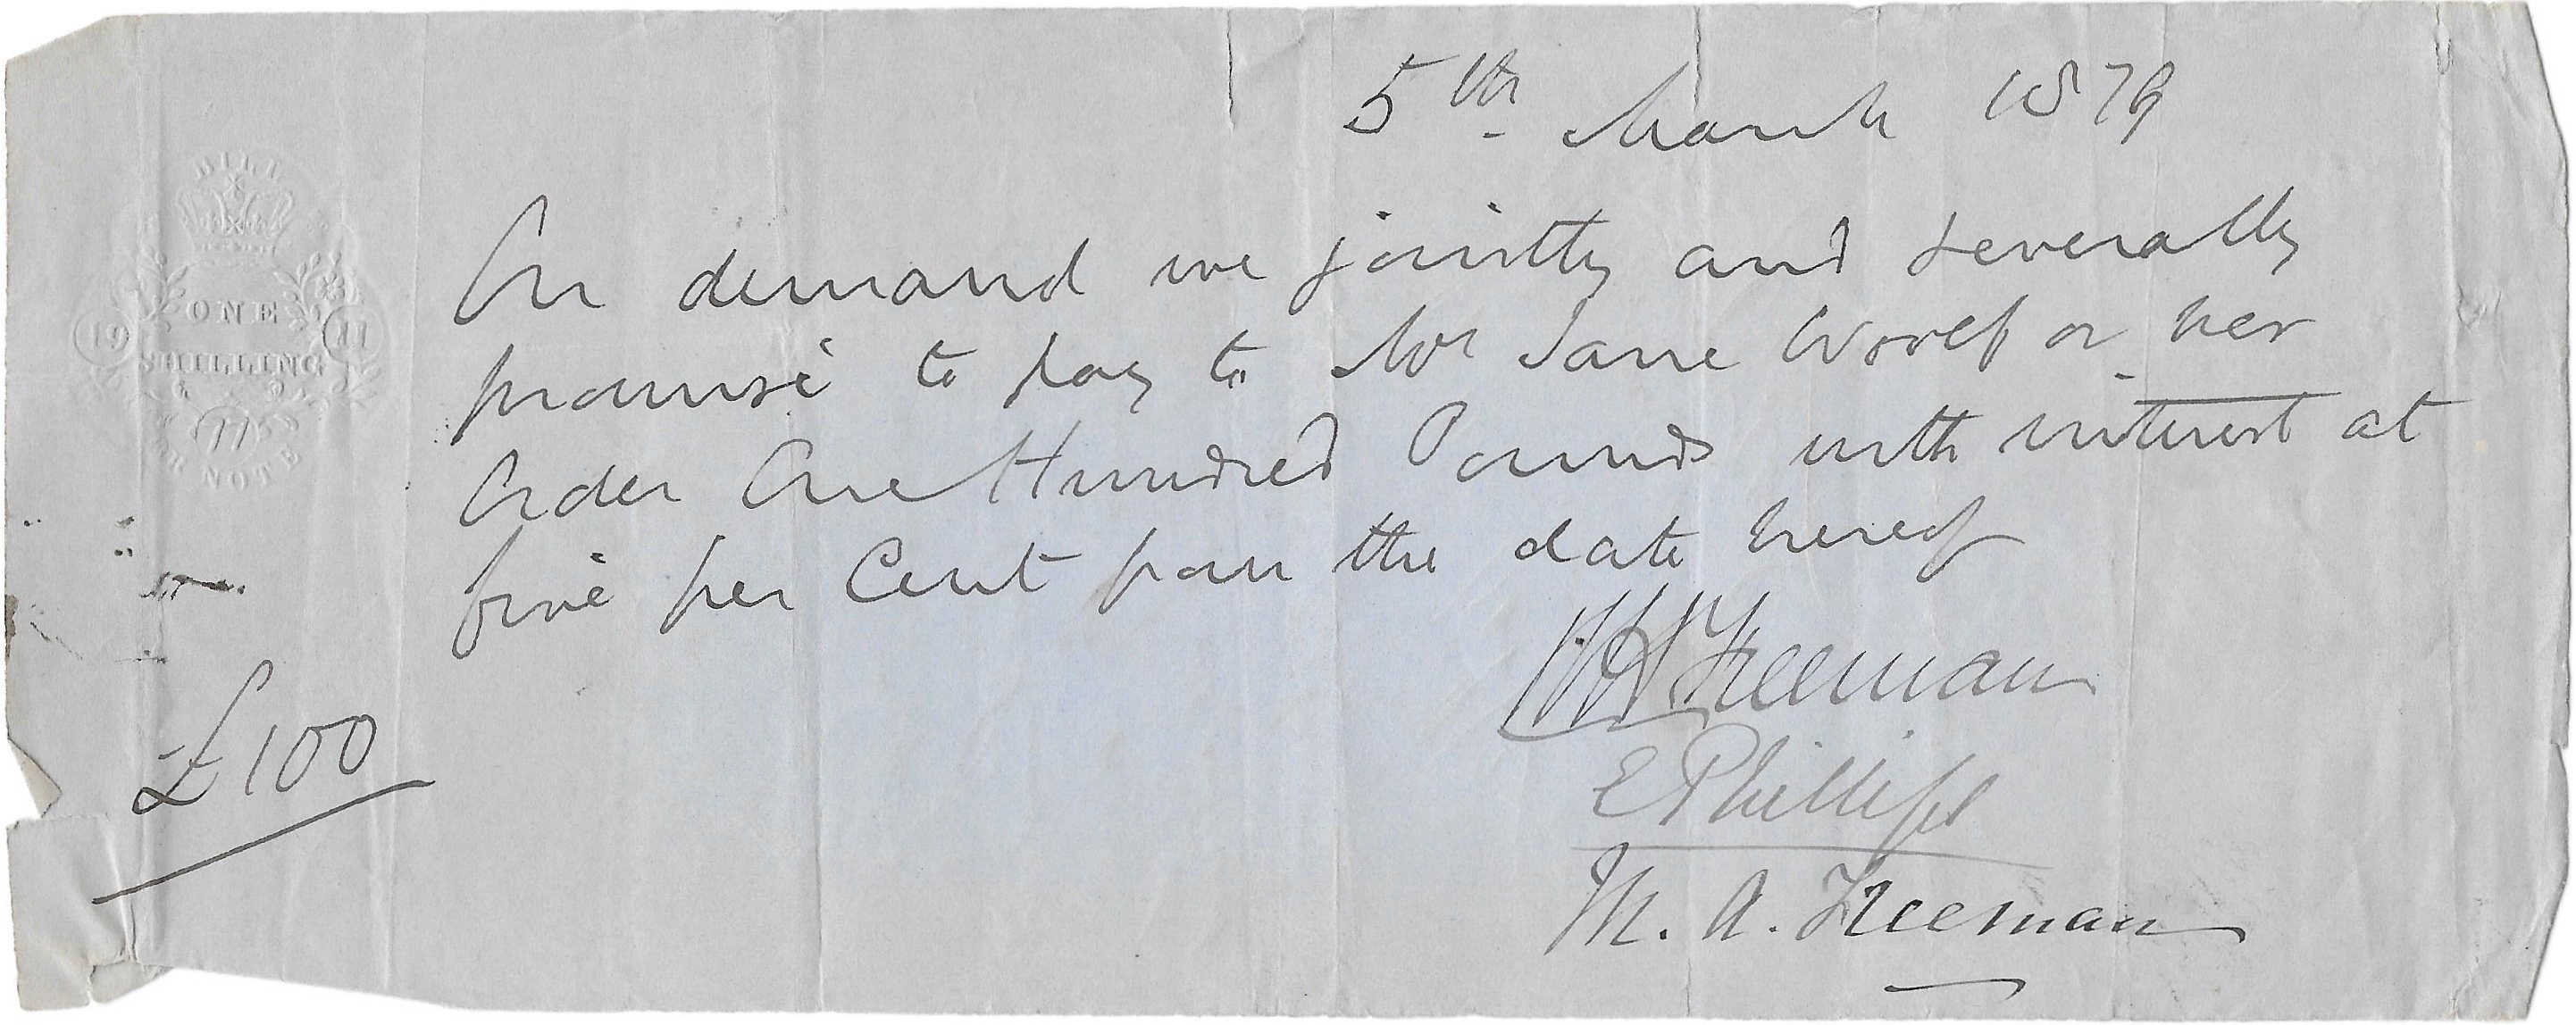 BILL
ONE
SHILLING
19 11
77
OR NOTE
5th March 1879
On demand we jointly and severally
promise to pay to Mrs Jane or her
order One Hundred Pounds with interest at
five per Cent from the date hereof
Freeman
E Phillips
M. A. Freeman
£100